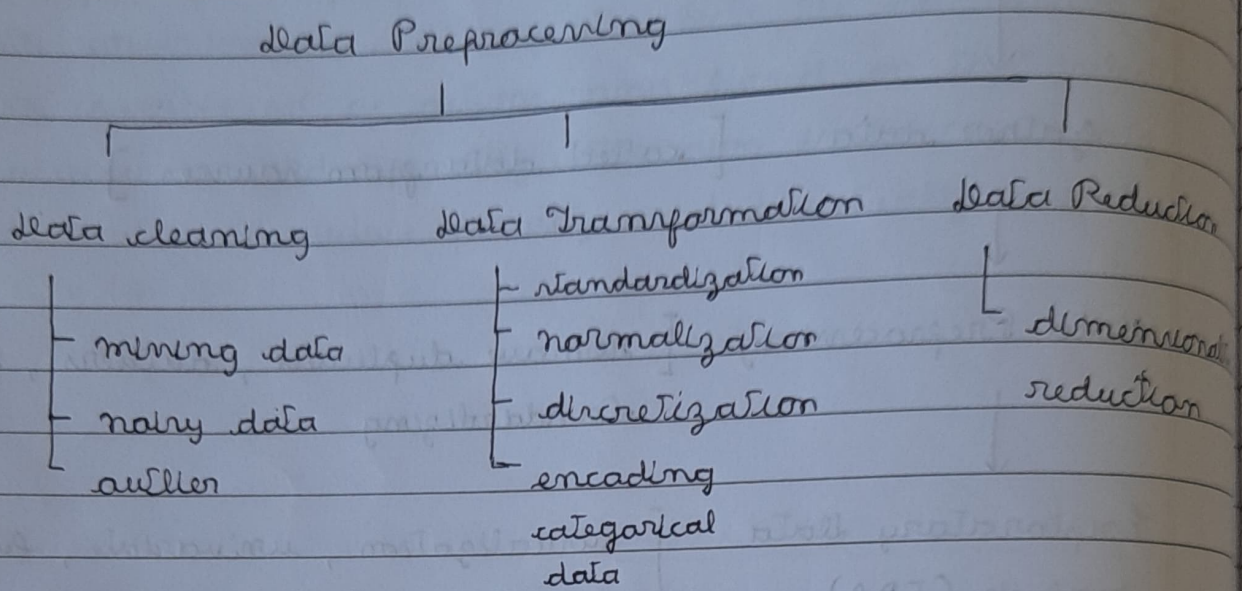 Data Preprocessing
Data cleaning
missing data
noisy data
outlier
Data Transformation
standardization
normalization
discretization
encoding
categorical
data
Data Reduction
dimensional
reduction